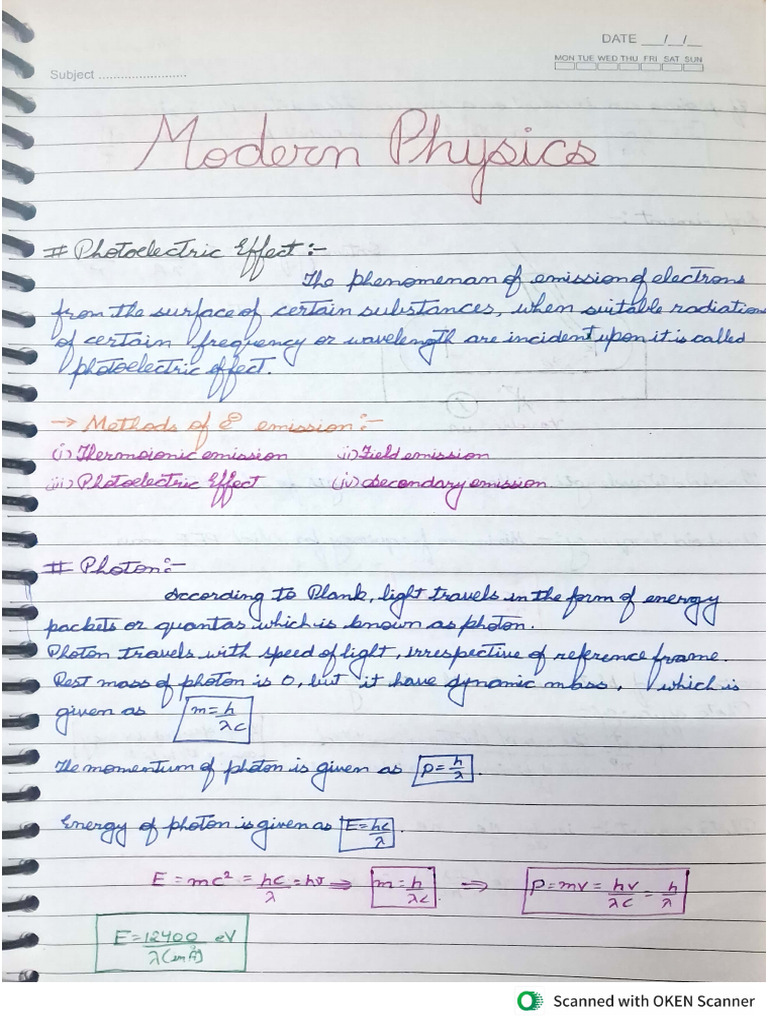 DATE __/__/__
MON TUE WED THU FRI SAT SUN
Subject ........................
Modern Physics
# Photoelectric Effect :-
The phenomenan of emission of electrons
from the surface of certain substances, when suitable radiation
of certain frequency or wavelength are incident upon it is called
photoelectric effect.
→ Methods of e⁻ emission :-
(i) Thermoionic emission (ii) Field emission
(iii) Photoelectric Effect (iv) Secondary emission
# Photon :-
According to Plank, light travels in the form of energy
packets or quantas which is known as photon.
Photon travels with speed of light, irrespective of reference frame.
Rest mass of photon is 0, but it have dynamic mass, which is
given as m = h/λc
The momentum of photon is given as p = h/λ.
Energy of photon is given as E = hc/λ.
E = mc² = hc/λ = hν ⇒ m = h/λc. ⇒ p = mv = hv/λc = h/λ
E = 12400/λ(in Å) eV
Scanned with OKEN Scanner